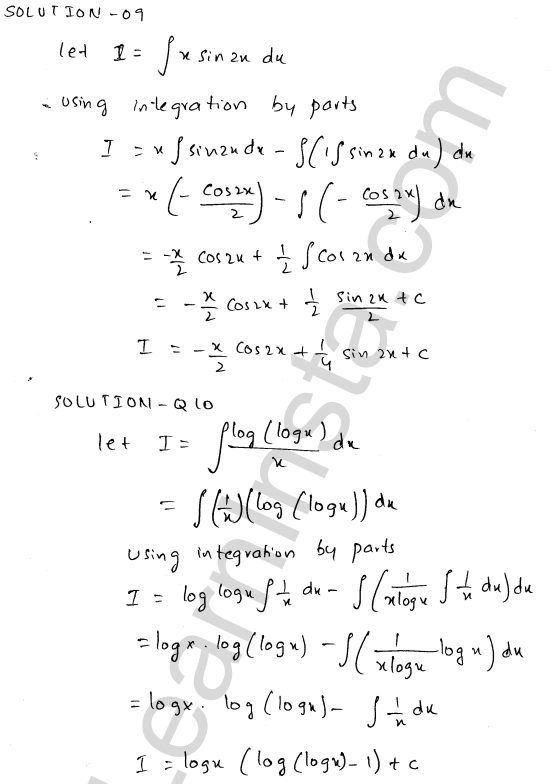 SOLUTION - 09
let I = ∫ x sin 2x dx
using integration by parts
I = x ∫ sin 2x dx - ∫ (1 ∫ sin 2x dx) dx
= x (- cos 2x / 2) - ∫ (- cos 2x / 2) dx
= -x/2 cos 2x + 1/2 ∫ cos 2x dx
= - x/2 cos 2x + 1/2 sin 2x / 2 + c
I = - x/2 cos 2x + 1/4 sin 2x + c
SOLUTION - Q10
let I = ∫ log (log x) / x dx
= ∫ (1/x) (log (log x)) dx
using integration by parts
I = log log x ∫ 1/x dx - ∫ (1 / x log x ∫ 1/x dx) dx
= log x . log (log x) - ∫ (1 / x log x log x) dx
= log x . log (log x) - ∫ 1/x dx
I = log x (log (log x) - 1) + c
Learninsta.com